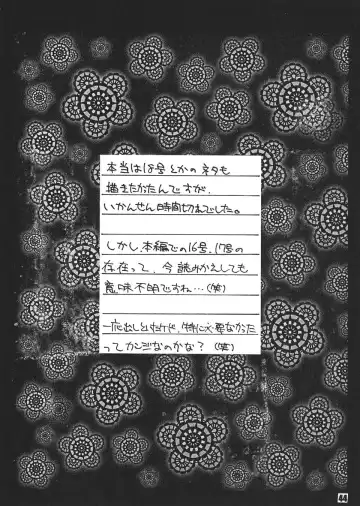 本当は18号とかのネタも
描きたかたんですが、
いかんせん時間切れでした。
しかし、本編での16号、17号の
存在って、今読みかえしても
意味不明ですね…(笑)
一応出しとくけど、特に必要なかた
ってカンジなのかな？(笑)
44